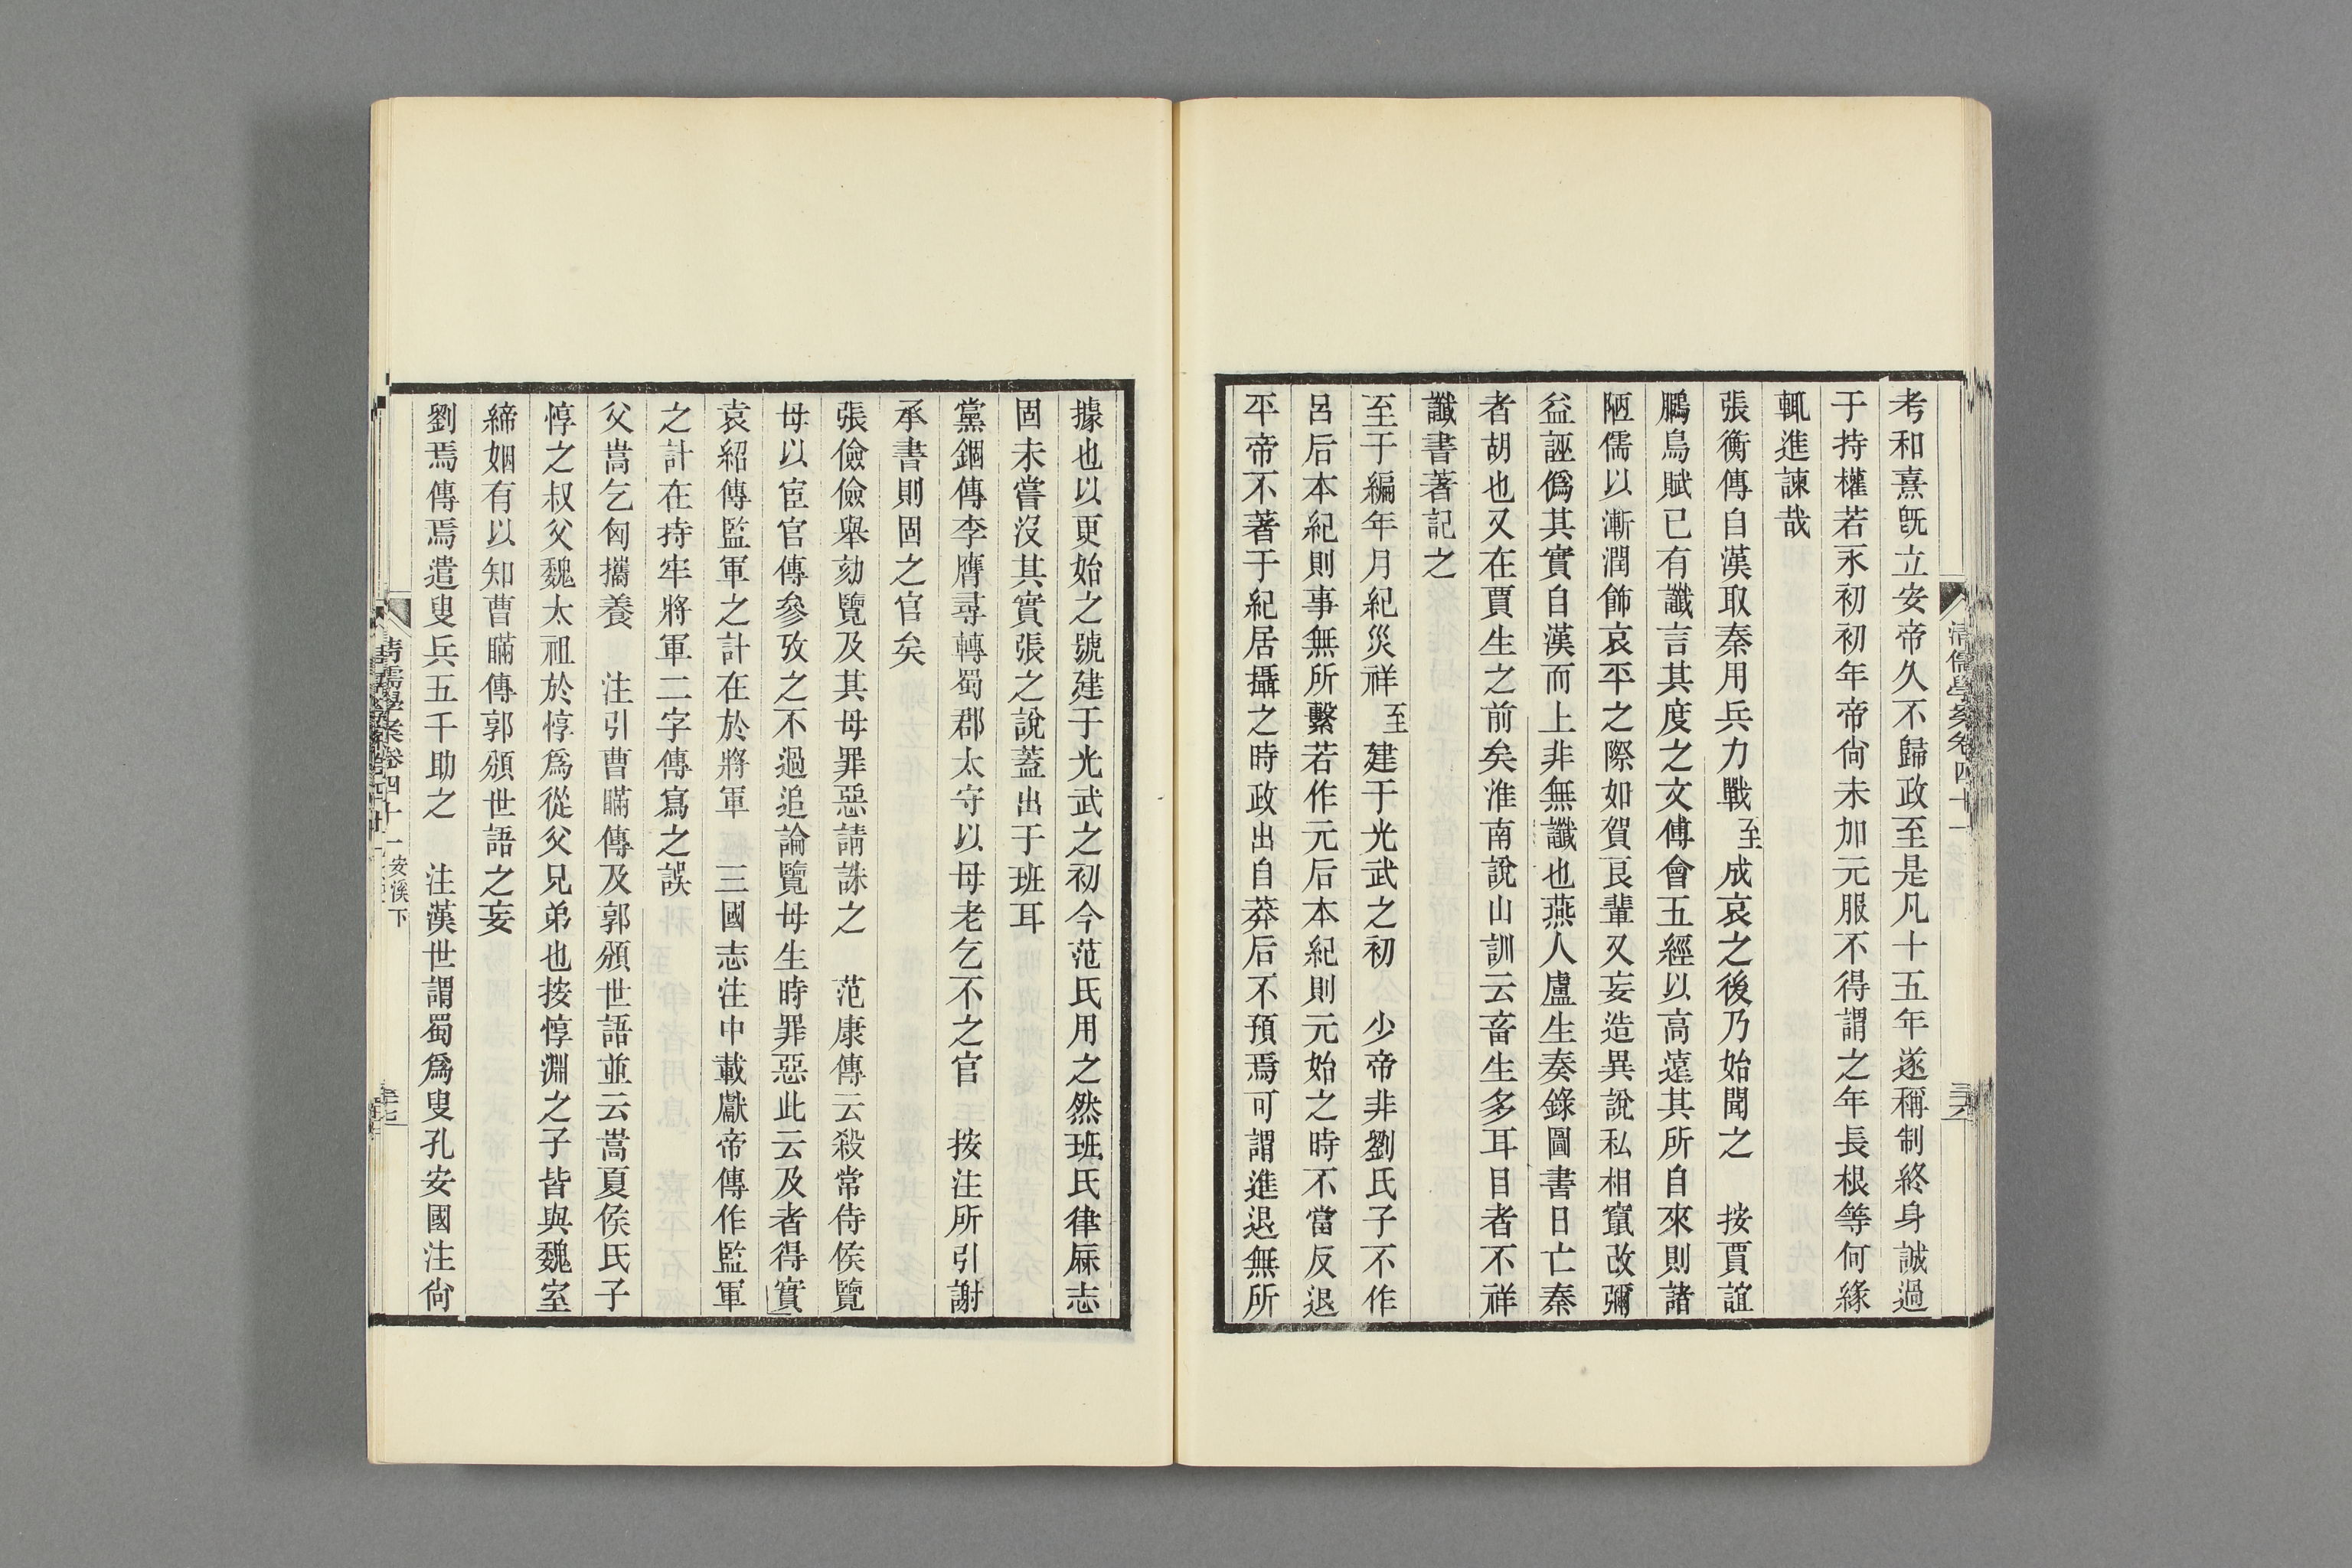 考和熹旣立安帝久不歸政至是凡十五年遂稱制終身誠過
于持權若永初初年帝尙未加元服不得謂之年長根等何緣
輒進諫哉
張衡傳自漢取秦用兵力戰至成哀之後乃始聞之　按賈誼
鵩鳥賦已有讖言其度之文傅會五經以高遠其所自來則諸
陋儒以漸潤飾哀平之際如賀良輩又妄造異說私相竄改彌
益誣僞其實自漢而上非無讖也燕人盧生奏錄圖書曰亡秦
者胡也又在賈生之前矣淮南說山訓云畜生多耳目者不祥
讖書著記之
至于編年月紀災祥至建于光武之初　少帝非劉氏子不作
呂后本紀則事無所繫若作元后本紀則元始之時不當反退
平帝不著于紀居攝之時政出自莽后不預焉可謂進退無所
清儒學案卷四十一
三六
據也以更始之號建于光武之初今范氏用之然班氏律厤志
固未嘗沒其實張之說蓋出于班耳
黨錮傳李膺尋轉蜀郡太守以母老乞不之官　按注所引謝
承書則固之官矣
張儉儉舉劾覽及其母罪惡請誅之　范康傳云殺常侍侯覽
母以宦官傳參攷之不過追論覽母生時罪惡此云及者得實
袁紹傳監軍之計在於將軍　三國志注中載獻帝傳作監軍
之計在持牢將軍二字傳寫之誤
父嵩乞匄攜養　注引曹瞞傳及郭頒世語並云嵩夏侯氏子
惇之叔父魏太祖於惇爲從父兄弟也按惇淵之子皆與魏室
締姻有以知曹瞞傳郭頒世語之妄
劉焉傳焉遣叟兵五千助之　注漢世謂蜀爲叟孔安國注尙
清儒學案卷四十一　安溪下
三七